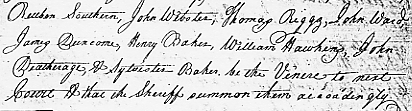 Reuben Southern, John Webster, Thomas Riggs, John Ward
James Duncome, Henry Baker, William Hawkins, John
Deatherage, & Sylvester Baker be the Venire to next
Court & that the Sheriff summon them accordingly